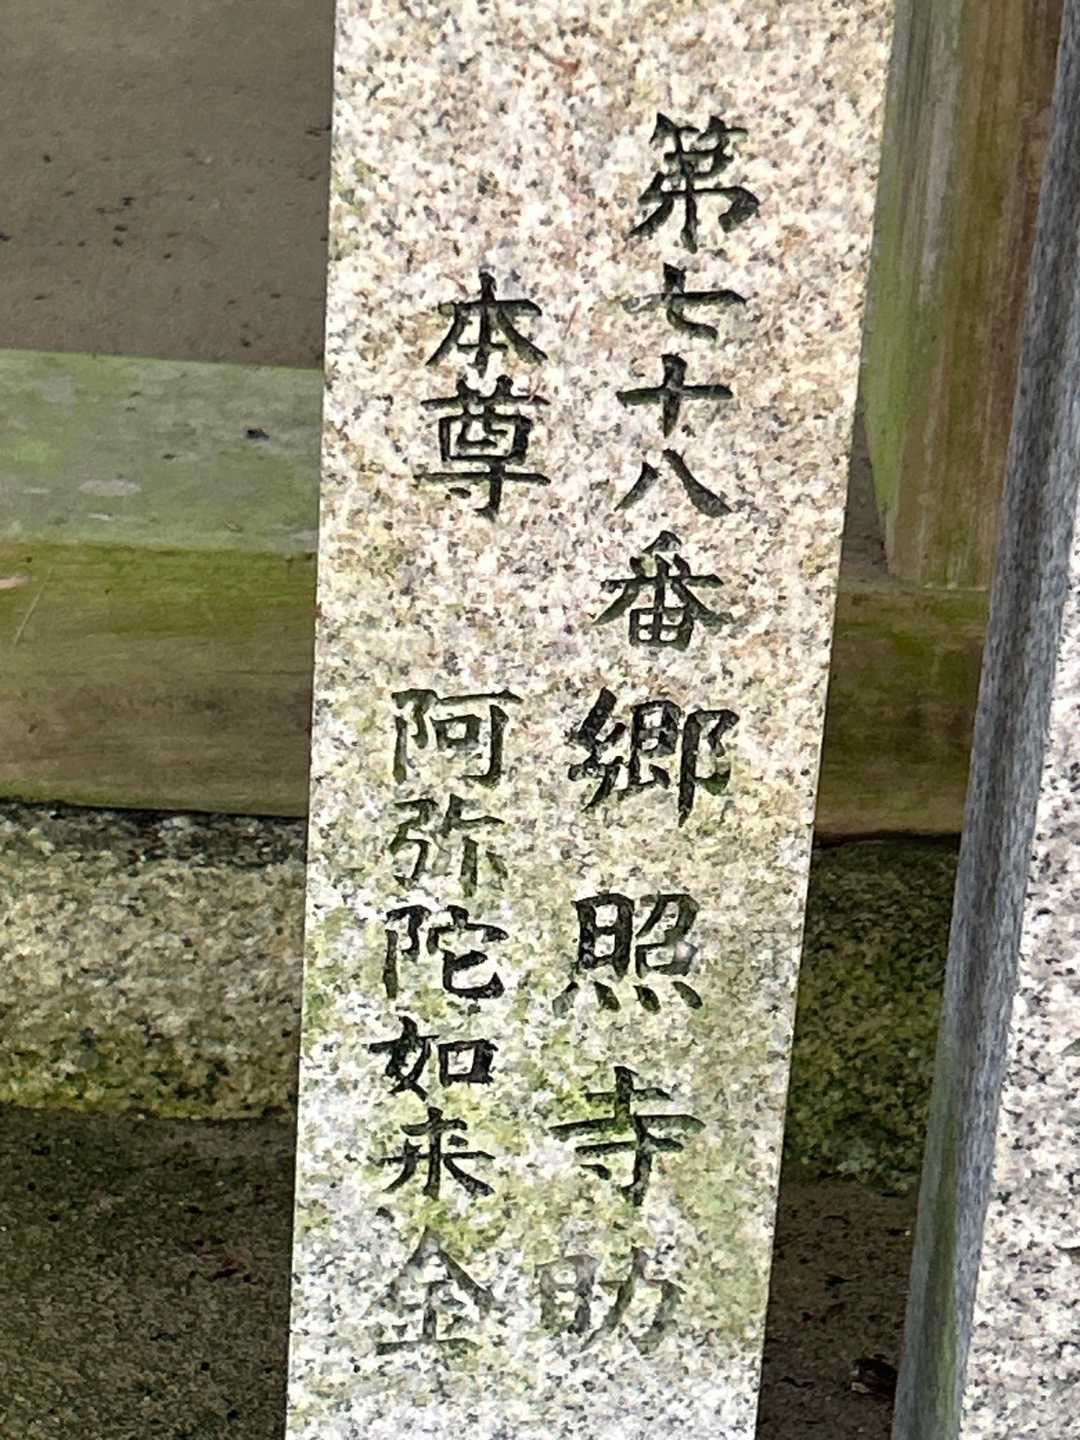 第七十八番郷照寺助
本尊 阿弥陀如来金